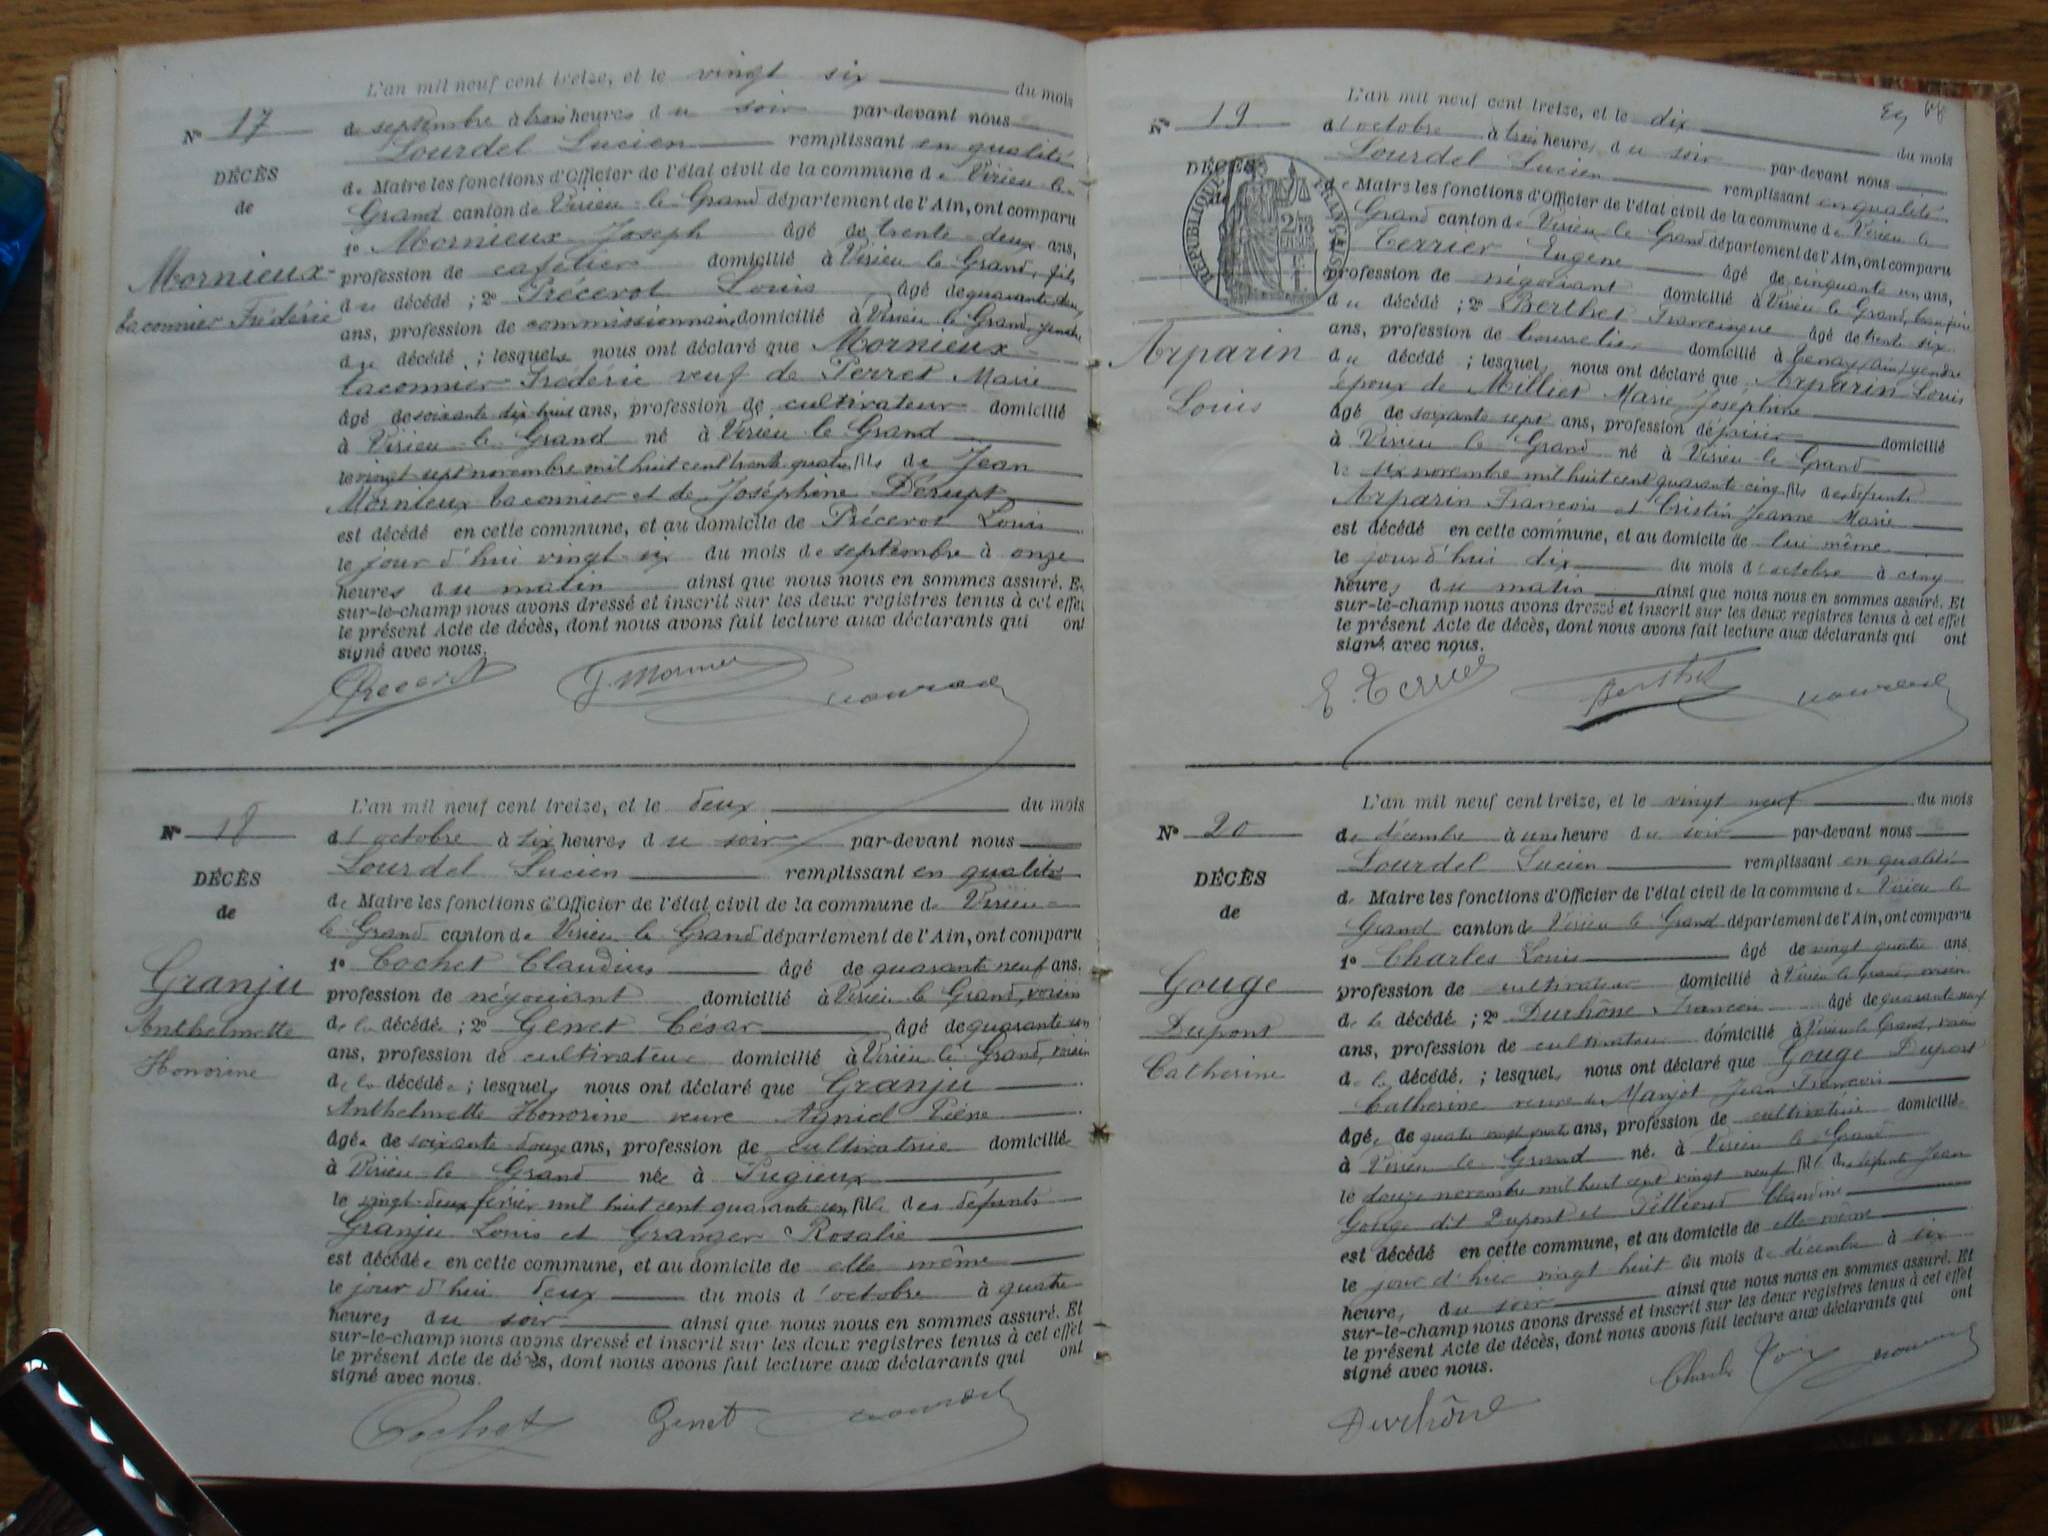 L'an mil neuf cent treize, et le vingt six du mois
N° 17
de septembre à trois heures du soir par-devant nous
Lourdel Lucien remplissant en qualité
DÉCÈS
de Maire les fonctions d'Officier de l'état civil de la commune de Virieu le
de
Grand canton de Virieu-le-Grand département de l'Ain, ont comparu
1° Mornieux Joseph âgé de trente-deux ans,
Mornieux-
profession de cafetier domicilié à Virieu le Grand, fils
Laconnier Frédéric
du décédé ; 2° Précerot Louis âgé de quarante
ans, profession de commissionnaire domicilié à Virieu le Grand, gendre
du décédé ; lesquels nous ont déclaré que Mornieux-
Laconnier Frédéric veuf de Perret Marie
âgé de soixante dix huit ans, profession de cultivateur domicilié
à Virieu-le-Grand né à Virieu le Grand
le vingt sept novembre mil huit cent trente quatre, fils de Jean
Mornieux Laconnier et de Joséphine Dérupt
est décédé en cette commune, et au domicile de Précerot Louis
le jour d'hui vingt-six du mois de septembre à onze
heures du matin ainsi que nous nous en sommes assuré. Et
sur-le-champ nous avons dressé et inscrit sur les deux registres tenus à cet effet
le présent Acte de décès, dont nous avons fait lecture aux déclarants qui ont
signé avec nous.
L'an mil neuf cent treize, et le deux du mois
N° 18
d'octobre à six heures du soir par-devant nous
Lourdel Lucien remplissant en qualité
DÉCÈS
de Maire les fonctions d'Officier de l'état civil de la commune de Virieu-
de
le Grand canton de Virieu le Grand département de l'Ain, ont comparu
1° Cochet Claudius âgé de quarante neuf ans.
Granju
profession de négociant domicilié à Virieu le Grand, voisin
Anthelmette
de la décédée ; 2° Genet César âgé de quarante un
Honorine
ans, profession de cultivateur domicilié à Virieu le Grand, voisin
de la décédée ; lesquels nous ont déclaré que Granju
Anthelmette Honorine veuve Aynid Pière
âgée de soixante-douze ans, profession de cultivatrice domiciliée
à Virieu le Grand née à Pugieux
le vingt-deux février mil huit cent quarante un, fille des défunts
Granju Louis et Granger Rosalie
est décédée en cette commune, et au domicile de elle même
le jour d'hui deux du mois d'octobre à quatre
heures du soir ainsi que nous nous en sommes assuré. Et
sur-le-champ nous avons dressé et inscrit sur les deux registres tenus à cet effet
le présent Acte de décès, dont nous avons fait lecture aux déclarants qui ont
signé avec nous.
Cochet Genet
L'an mil neuf cent treize, et le dix du mois
N° 19
d'octobre à trois heures du soir par-devant nous
Lourdel Lucien remplissant en qualité
DÉCÈS
RÉPUBLIQUE FRANÇAISE
de Maire les fonctions d'Officier de l'état civil de la commune de Virieu le
Grand canton de Virieu le Grand département de l'Ain, ont comparu
Terrier Eugène âgé de cinquante un ans,
profession de négociant domicilié à Virieu le Grand, beau frère
du décédé ; 2° Berthet Francisque âgé de trente six
Arparin
ans, profession de bourrelier domicilié à Tenay (Ain) gendre
Louis
du décédé ; lesquels nous ont déclaré que Arparin Louis
époux de Milliet Marie Joséphine
âgé de soixante sept ans, profession de domicilié
à Virieu le Grand né à Virieu le Grand
le six novembre mil huit cent quarante-cinq, fils des défunts
Arparin François et Cristin Jeanne Marie
est décédé en cette commune, et au domicile de lui même
le jour d'hui dix du mois d'octobre à cinq
heures du matin ainsi que nous nous en sommes assuré. Et
sur-le-champ nous avons dressé et inscrit sur les deux registres tenus à cet effet
le présent Acte de décès, dont nous avons fait lecture aux déclarants qui ont
signé avec nous.
E. Terrier Berthet
L'an mil neuf cent treize, et le vingt neuf du mois
N° 20
de décembre à une heure du soir par-devant nous
Lourdel Lucien remplissant en qualité
DÉCÈS
de Maire les fonctions d'Officier de l'état civil de la commune de Virieu le
de
Grand canton de Virieu le Grand département de l'Ain, ont comparu
1° Charles Louis âgé de vingt quatre ans.
Gouge
profession de cultivateur domicilié à Virieu le Grand, voisin
Dupont
de la décédée ; 2° Durhône François âgé de quarante neuf
Catherine
ans, profession de cultivateur domicilié à Virieu le Grand, voisin
de la décédée ; lesquels nous ont déclaré que Gouge Dupont
Catherine veuve de Manjot Jean François
âgée de quatre vingt quatre ans, profession de cultivatrice domiciliée
à Virieu le Grand née à Virieu le Grand
le douze novembre mil huit cent vingt neuf fille des défunts Jean
Gouge dit Dupont et Claudine
est décédé en cette commune, et au domicile de elle-même
le jour d'hier vingt huit du mois de décembre à six
heures du soir ainsi que nous nous en sommes assuré. Et
sur-le-champ nous avons dressé et inscrit sur les deux registres tenus à cet effet
le présent Acte de décès, dont nous avons fait lecture aux déclarants qui ont
signé avec nous.
Durhône Charles Louis